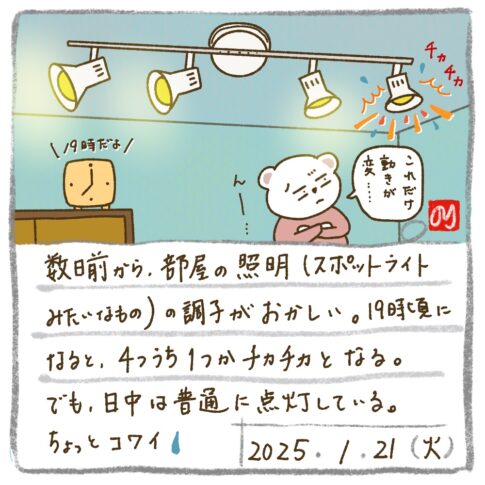 チカチカ
\19時だよ/
んー…
これだけ
動きが
変……
数日前から、部屋の照明(スポットライト
みたいなもの)の調子がおかしい。19時頃に
なると、4つうち1つがチカチカとなる。
でも、日中は普通に点灯している。
ちょっとコワイ
2025.1.21(火)